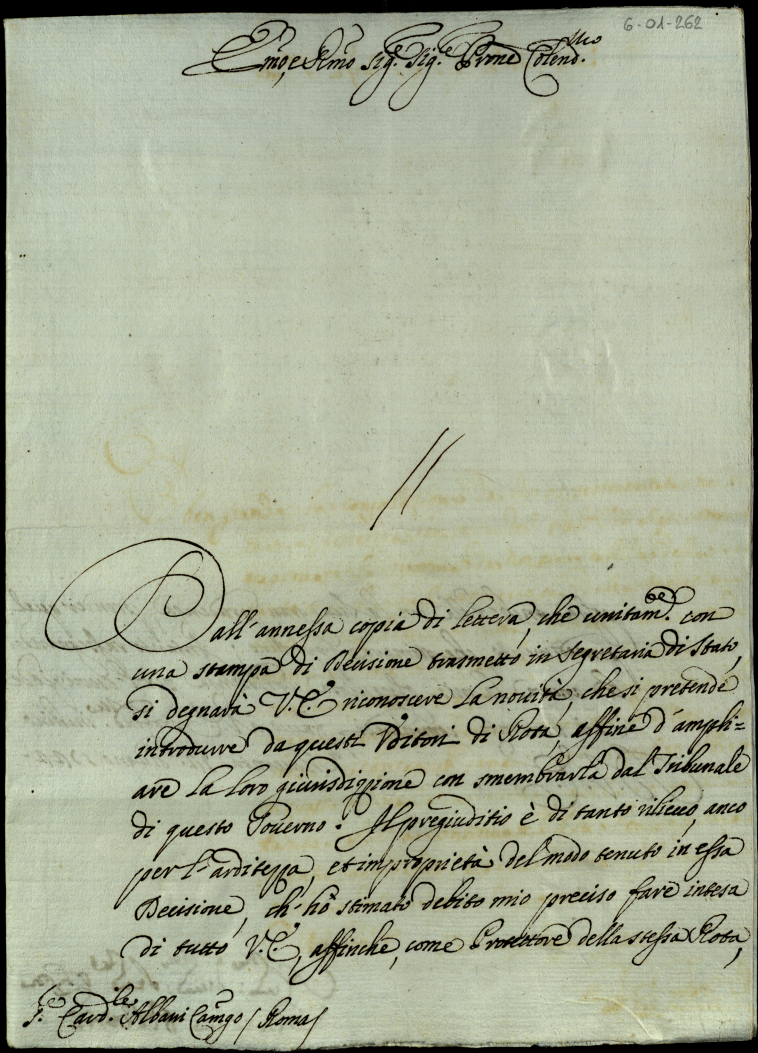 6-01-262
Emo, e Rmo Sig.re Sig.re Prone Colend.mo
Dall'annessa copia di lettera, che unitam.te con
una stampa di Decisione trasmetto in Segretaria di Stato,
si degnarà V. E. riconoscere la novità, che si pretende
introdurre da questi Uditori di Rota, affine d'ampli=
are la loro giurisdizione con smembrarla dal Tribunale
di questo Governo. Il pregiuditio è di tanto rilievo, anco
per l'arditezza, et improprietà del modo tenuto in essa
Decisione, ch'hò stimato debito mio preciso fare intesa
di tutto V. E., affinche, come Protettore della stessa Rota,
S.r Card.le Albani Camgo / Roma /